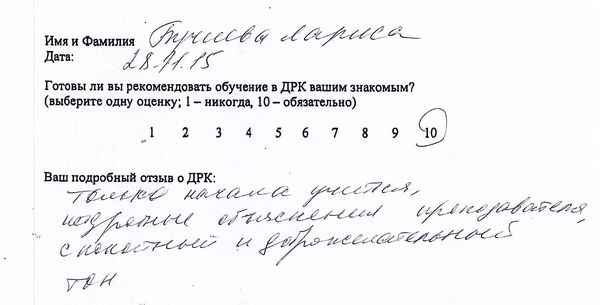 Имя и Фамилия Бучнева Лариса
Дата: 28.11.15
Готовы ли вы рекомендовать обучение в ДРК вашим знакомым?
(выберите одну оценку; 1 – никогда, 10 – обязательно)
1 2 3 4 5 6 7 8 9 10
Ваш подробный отзыв о ДРК:
только начала учится,
подробные объяснения преподавателя,
спокойный и доброжелательный
тон